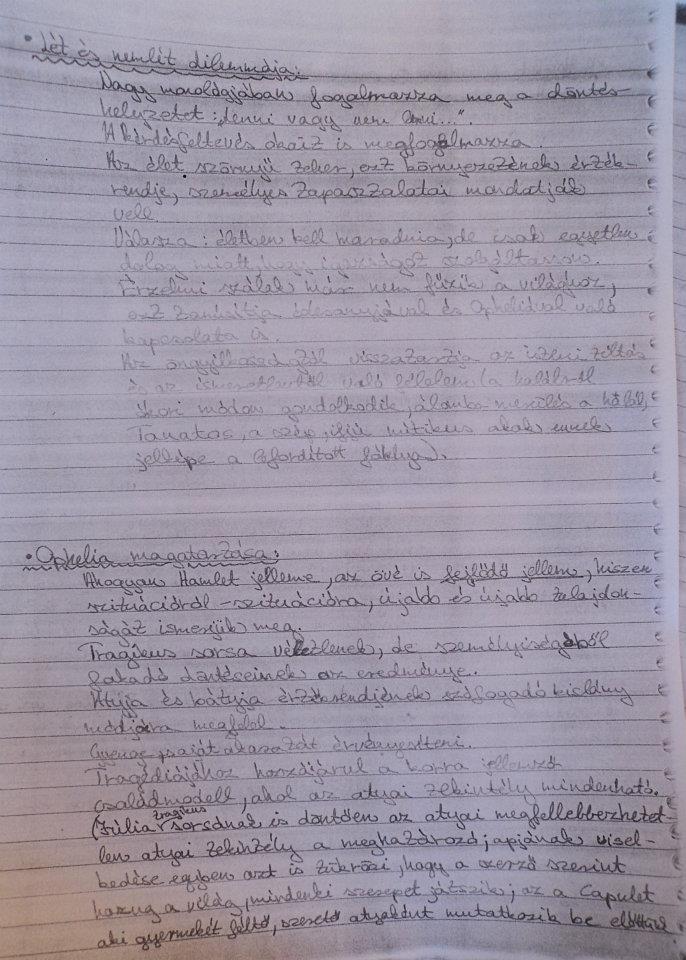 • Lét és nemlét dilemmája:
Nagy monológjában fogalmazza meg a döntés-
helyzetet: „lenni vagy nem lenni...".
A kérdésfeltevés okait is megfogalmazza.
Az élet szörnyű teher, ezt környezetének érték-
rendje, személyes tapasztalatai mondatják
vele.
Válasza: életben kell maradnia, de csak egyetlen
dolog miatt, hogy igazságot szolgáltasson.
Érzelmi szálak már nem fűzik a világhoz,
ezt tanúsítja édesanyjával és Opheliával való
kapcsolata is.
Az öngyilkosságtól visszatartja az isteni tiltás
és az ismeretlentől való félelem (a halálról
ókori módon gondolkodik, álomba merülés a halál,
Tanatos, a szép, ifjú mitikus alak ennek
jelképe a lefordított fáklya).
• Ophelia magatartása:
Ahogyan Hamlet jelleme, az övé is fejlődő jellem, hiszen
szituációról-szituációra, újabb és újabb tulajdon-
ságát ismerjük meg.
Tragikus sorsa véletlenek, de személyiségéből
fakadó döntéseinek az eredménye.
Atyja és bátyja értékrendjének szófogadó kislány
módjára megfelel.
Gyenge saját akaratát érvényesíteni.
Tragédiájához hozzájárul a korra jellemző
családmodell, ahol az atyai tekintély mindenható.
(Júlia tragikus sorsának is döntően az atyai megfellebbezhetet-
len atyai tekintély a meghatározó; apjának visel-
kedése egyben azt is tükrözi, hogy a szerző szerint
hazug a világ, mindenki szerepet játszik; az a Capulet
aki gyermekét féltő, szerető atyaként mutatkozik be előttünk